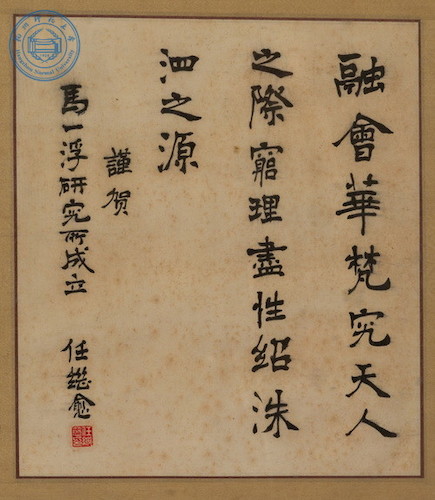 融會華梵究天人
之際窮理盡性紹洙
泗之源
謹贺
馬一浮研究所成立
任继愈